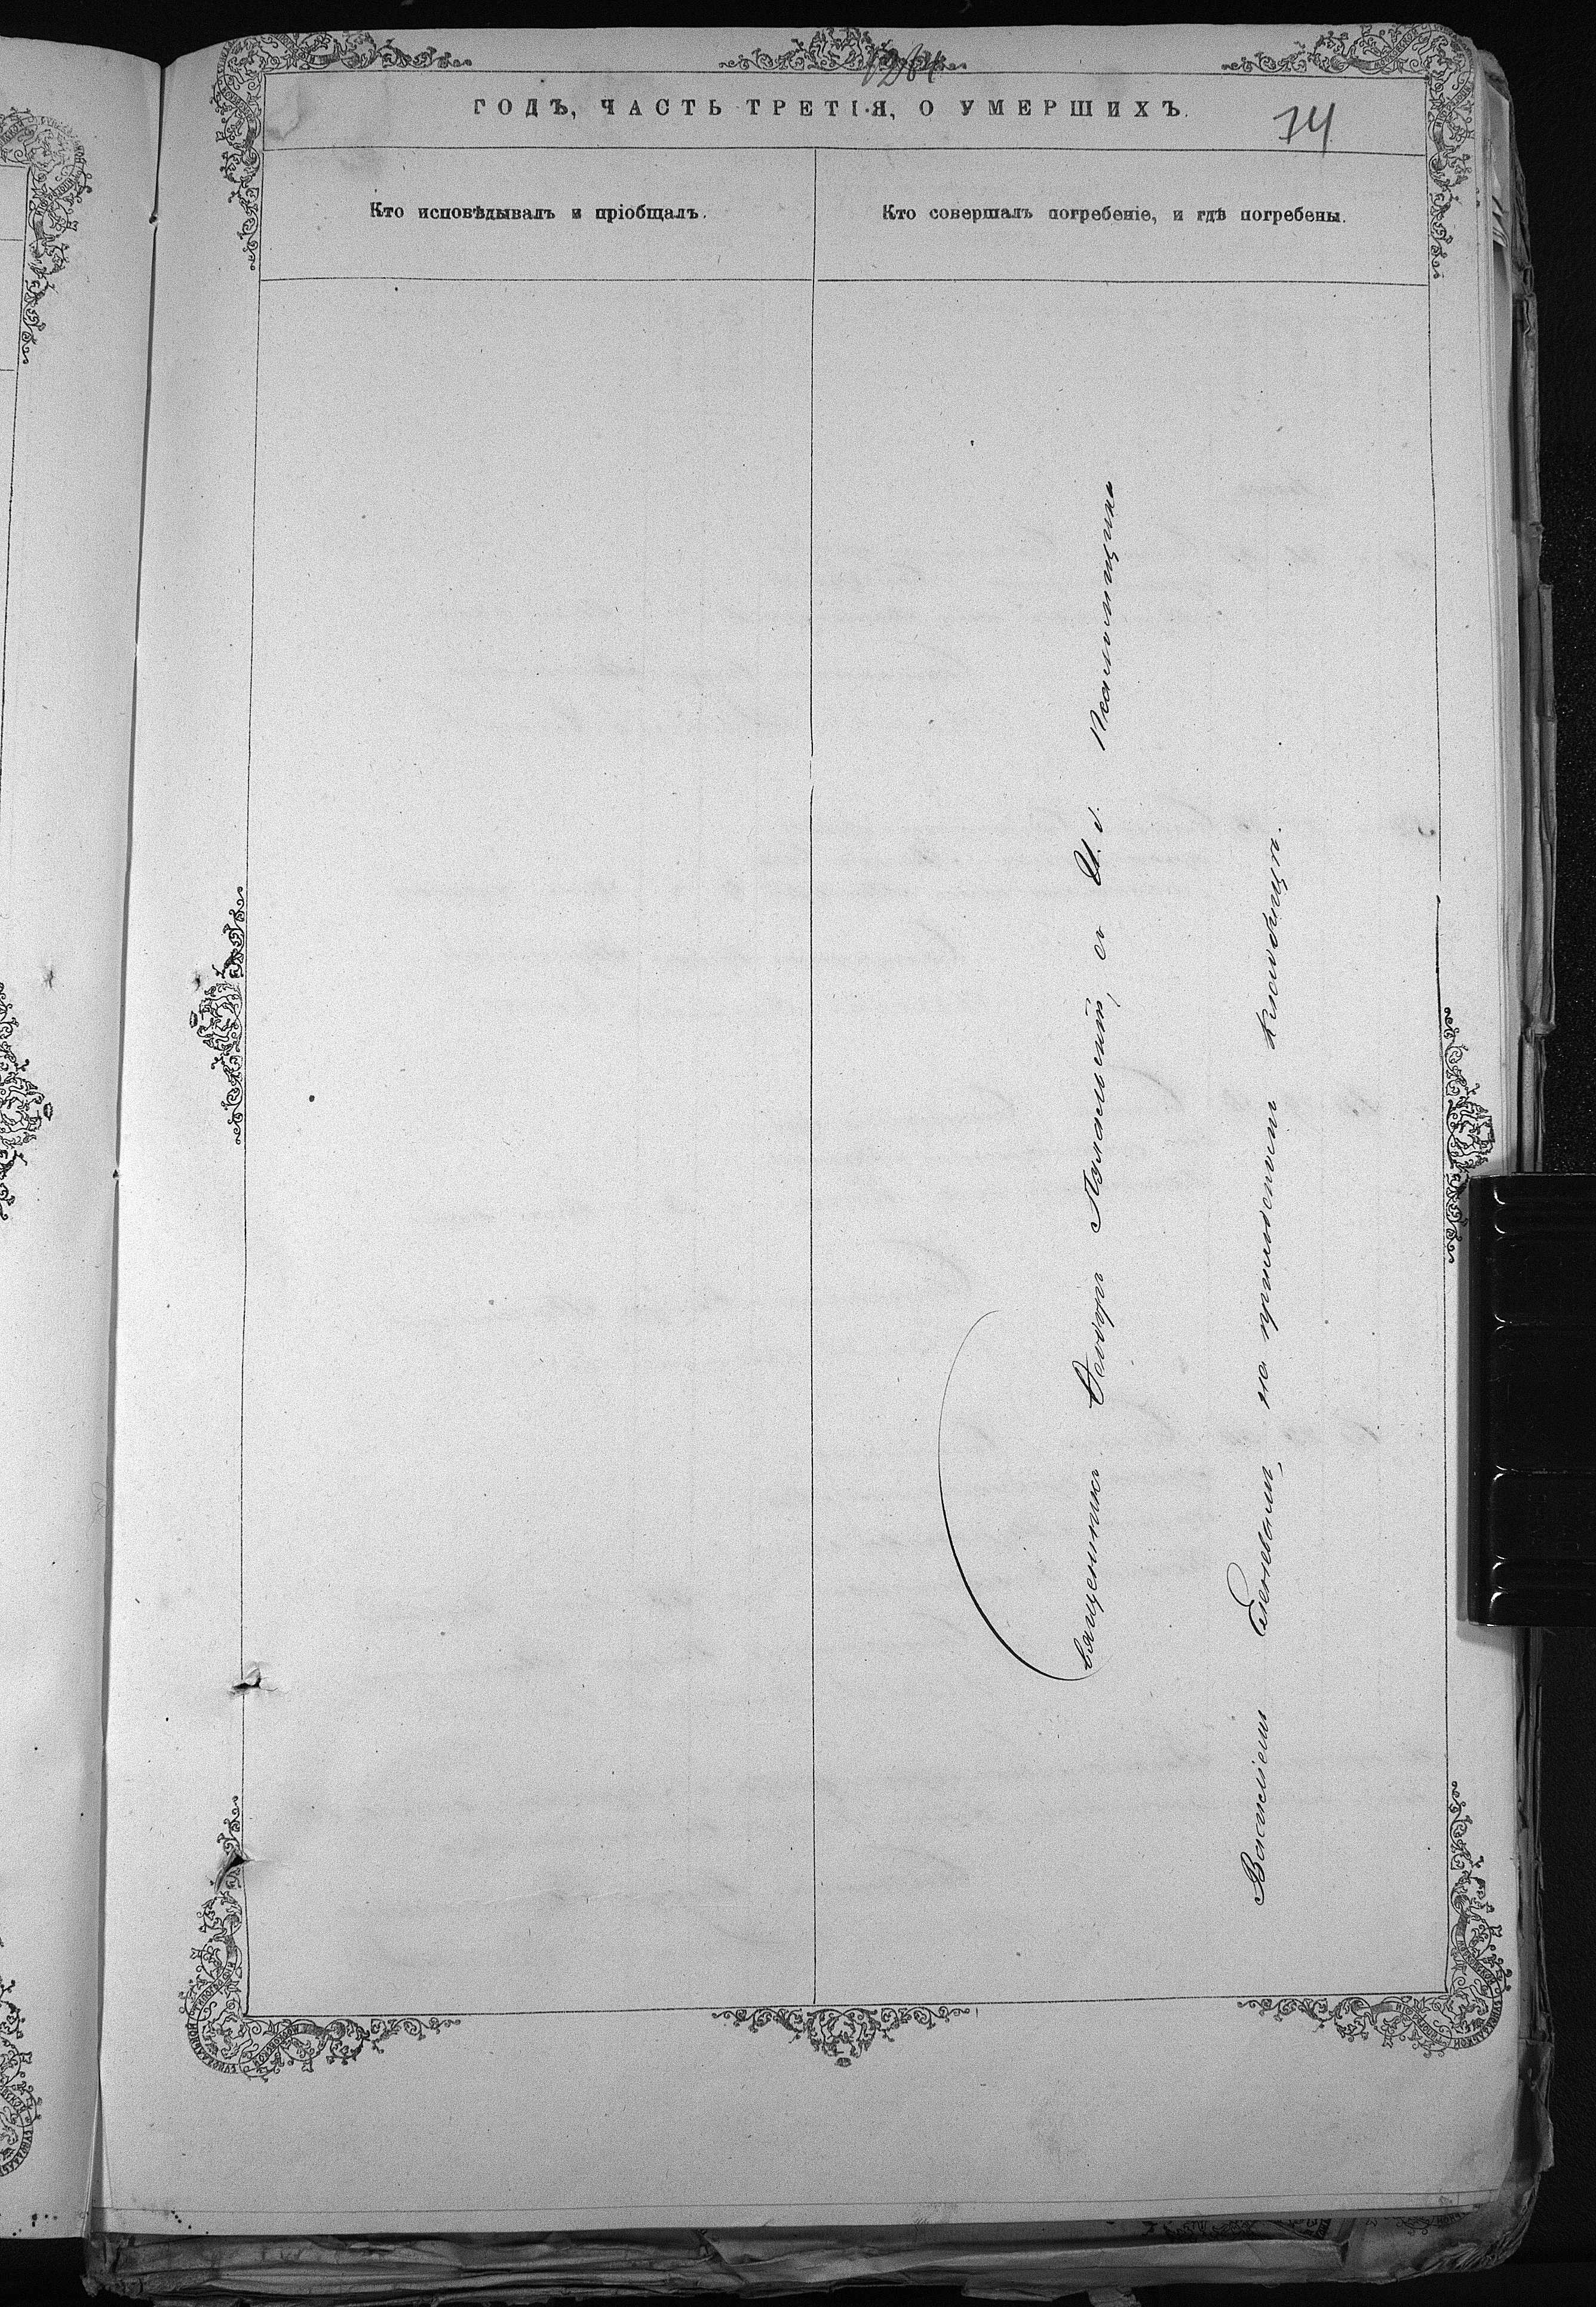 1264
ГОДЪ, ЧАСТЬ ТРЕТІЯ, О УМЕРШИХЪ.
74
Кто исповѣдывалъ и пріобщалъ.
Кто совершалъ погребеніе, и гдѣ погребены.
Священникъ Ѳеодоръ съ И. д. Псаломщика
Василіемъ на приходскомъ кладбищѣ.